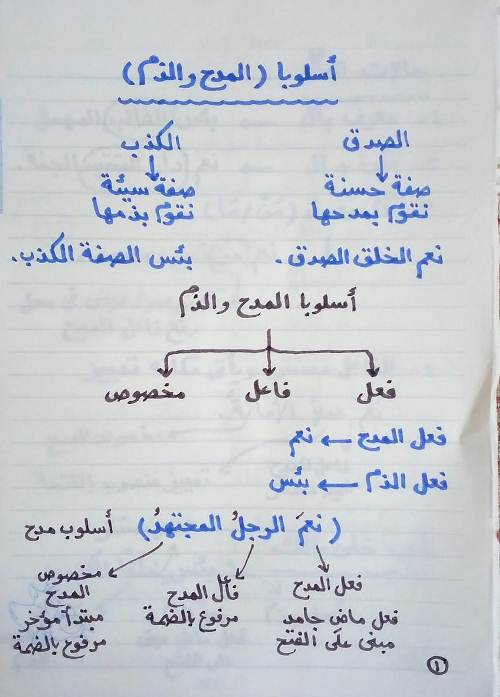 أسلوبا (المدح والذم)
الصدق الكذب
صفة حسنة صفة سيئة
نقوم بمدحها نقوم بذمها
نعم الخلق الصدق. بئس الصفة الكذب.
أسلوبا المدح والذم
فعل فاعل مخصوص
فعل المدح ← نعم
فعل الذم ← بئس
(نعمَ الرجلُ المجتهدُ) أسلوب مدح
فعل المدح فاعل المدح مخصوص المدح
فعل ماض جامد مرفوع بالضمة مبتدأ مؤخر
مبنى على الفتح مرفوع بالضمة
١